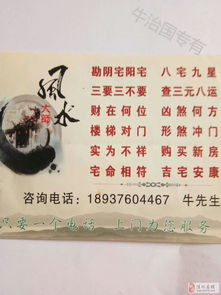 牛治国专有
风水
大师
勘阴宅阳宅 八宅九星
三要三不要 查三元八运
财在何位 凶煞何方
楼梯对门 形煞冲门
实为不祥 购买新房
宅命相符 吉宅安康
咨询电话：18937604467 牛先生
只要一个电话 上门为您服务